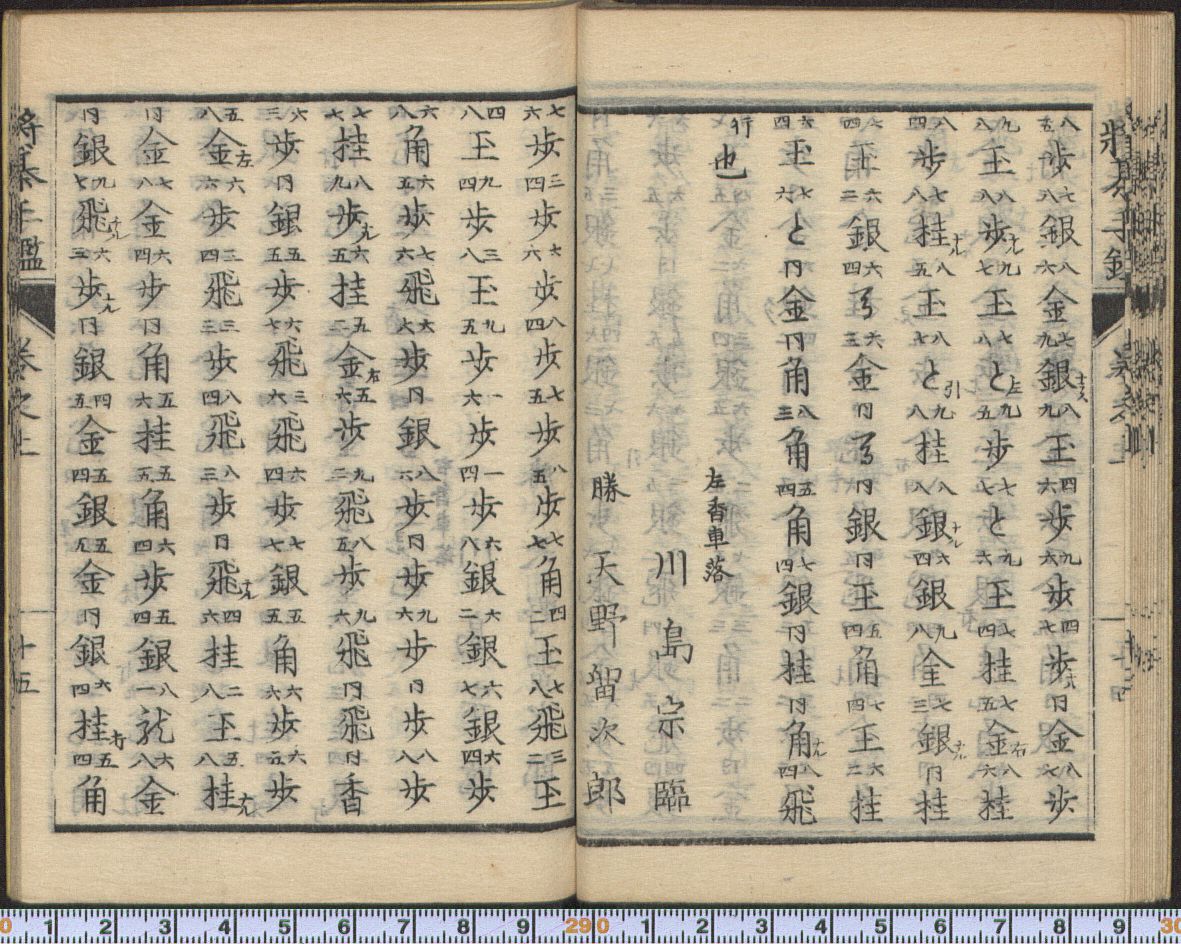 将棋手鑑 巻之上 十四
八五歩 七八銀 八六金 七九銀 八九王 四六歩 九六歩 四七歩 同金 八七歩
九八王 八八歩ナル 九七王 七八と左 九五歩 七七と 九六王 七四桂 七五金右 八六桂
八四歩 七七桂ナル 八五王 八七と引 九八桂 八八銀ナル 六四銀 九八全 七三銀ナル 同桂
七四王 六二銀 六四馬 六三金 同馬 同銀 同王 五四角 七四王 六二桂
六四王 七六と 同金 同角 八三角 五四角 七四銀 同桂 同角ナル 八四飛
行也
左香車落
川島宗臨
勝 天野留次郎
七六歩 三四歩 六六歩 八四歩 七五歩 八五歩 七七角 四二王 七八飛 三二王
四八王 九四歩 三八王 九五歩 一六歩 一四歩 六八銀 六二銀 六七銀 六四歩
六八角 六五歩 七六飛 六六歩 同銀 八六歩 同歩 九六歩 同歩 八八歩
七七桂 八九歩ナル 六五桂 五二金右 五六歩 九二飛 八五歩 九六飛 同飛 同香
六三歩 同銀 五五歩 六七飛 三六飛 六四歩 七七銀 五五角 六六歩 六五歩
五八金左 六六歩 三四飛 三三歩 八四飛 八三歩 同飛ナル 四六桂 二八王 五八桂ナル
同金 七八金 六四歩 同角 五六桂 五五角 六四歩 五四銀 八一龍 六八金
同銀 九七飛ナル 六三歩ナル 同銀 四五金 五四銀 金 同銀 六四桂打 五四角
将棊手鑑 巻之上 十五